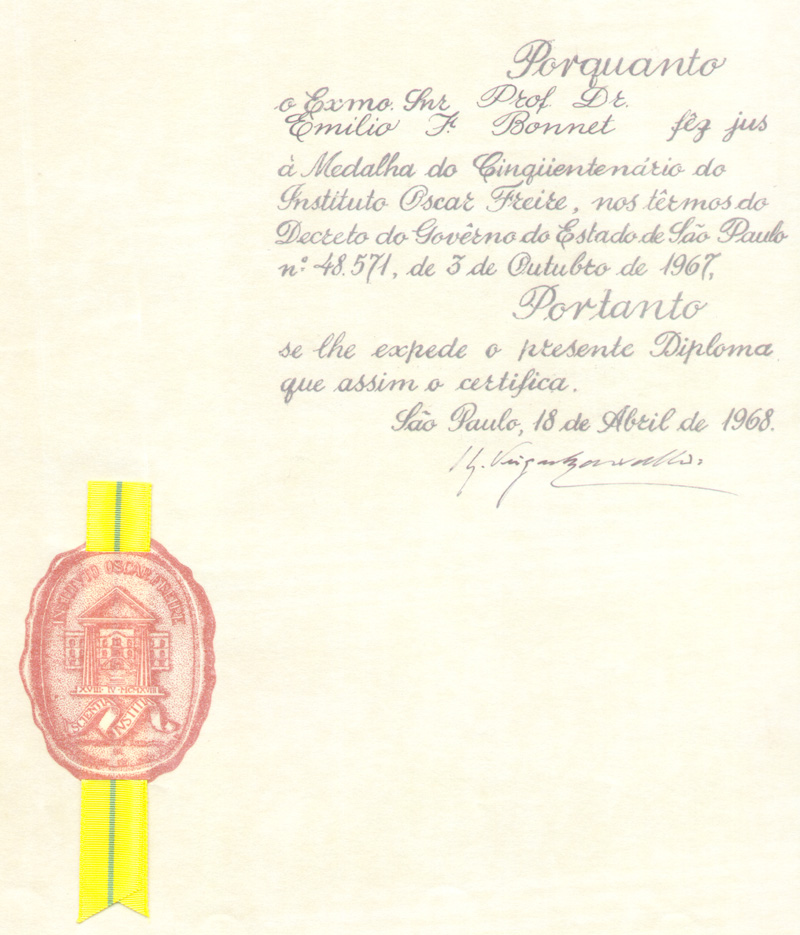 Porquanto
o Exmo. Snr Prof. Dr.
Emilio F. Bonnet fêz jus
à Medalha do Cinqüentenário do
Instituto Oscar Freire, nos têrmos do
Decreto do Govêrno do Estado de São Paulo
nº 48.571, de 3 de Outubro de 1967,
Portanto
se lhe expede o presente Diploma
que assim o certifica.
São Paulo, 18 de Abril de 1968.
INSTITVTO OSCAR FREIRE
XVIII IV MCMXVIII
SCIENTIA IVSTITIA